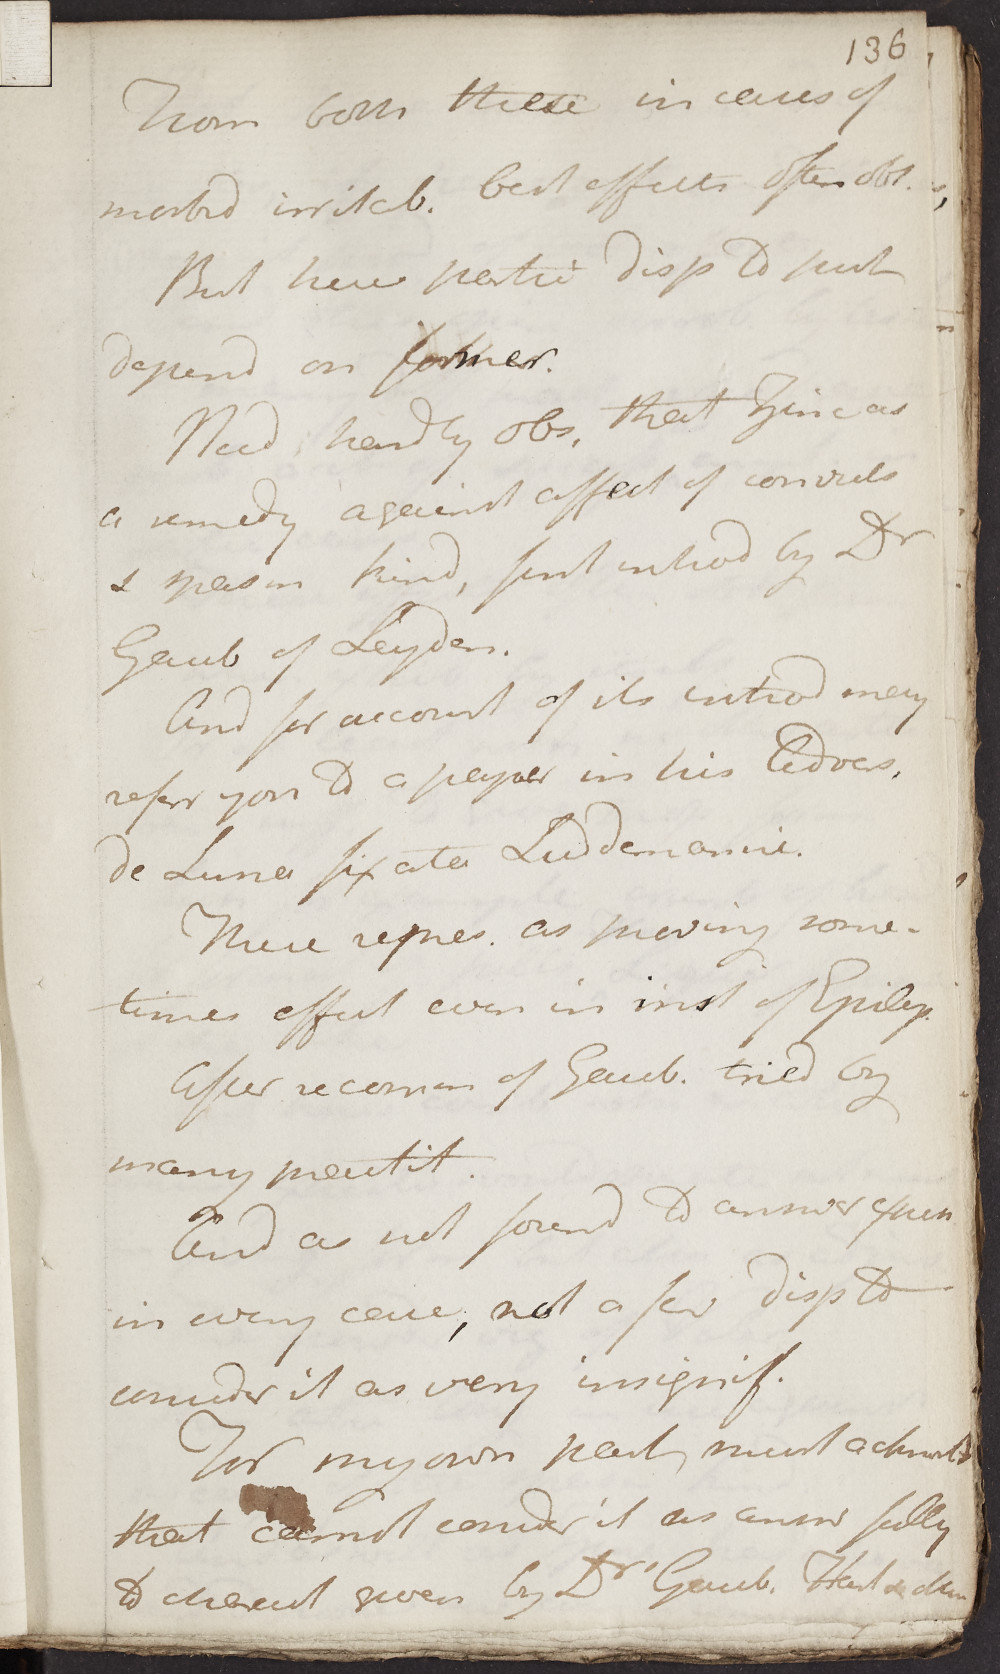 136
From both these in cases of
morbid irritab. best effects often obs.
But here partic disp to just
depend on former.
Need hardly obs, that Zinc as
a remedy against affect of convuls
& spasm kind, first introd by Dr
Gaub of Leyden.
And for account of its introd may
refer you to a paper in his Advers.
de Luna fixata Luddemanni.
There repres. as proving some-
times effect even in inst of Epilep.
After recomm of Gaub. tried by
many practit.
And as not found to answer expec
in every case, not a few disp to
consider it as very insignif.
For my own part, must acknowl
that cannot consider it as answ fully
to charact given by Dr Gaub.